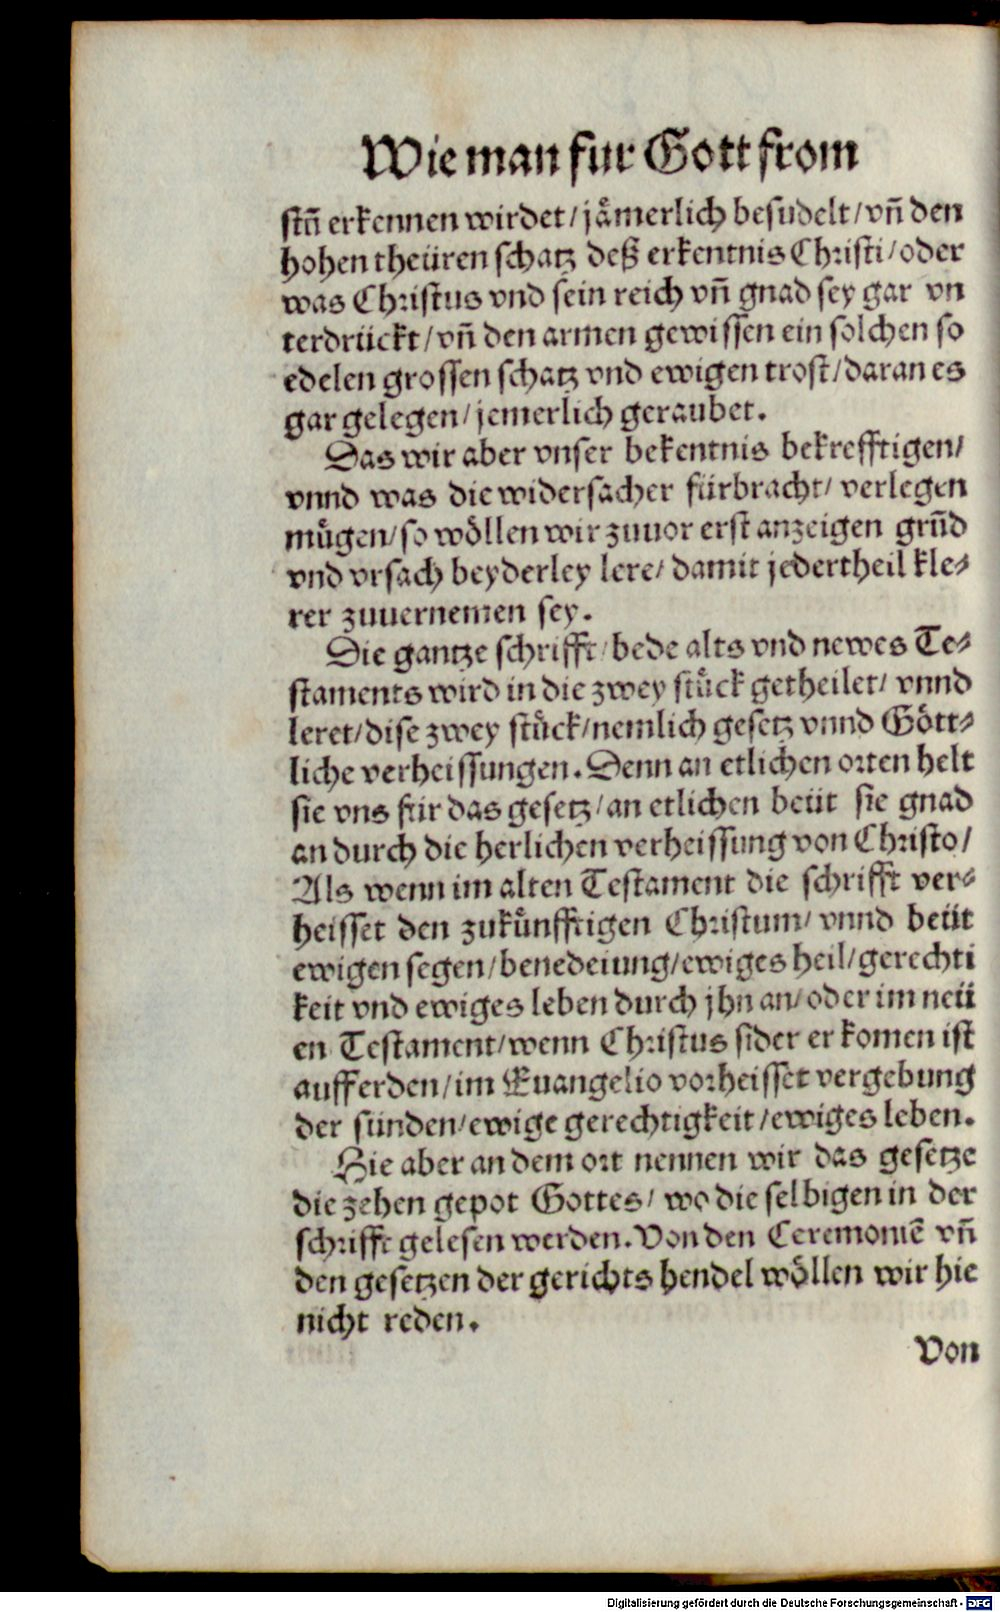 Wie man fur Gott from
stñ erkennen wirdet/ jämerlich besudelt/ vñ den
hohen theüren schatz deß erkentnis Christi/ oder
was Christus vnd sein reich vñ gnad sey gar vn
terdrückt/ vñ den armen gewissen ein solchen so
edelen grossen schatz vnd ewigen trost/ daran es
gar gelegen/ jemerlich geraubet.
Das wir aber vnser bekentnis bekrefftigen/
vnnd was die widersacher fürbracht/ verlegen
mügen/ so wöllen wir zuuor erst anzeigen grũd
vnd vrsach beyderley lere/ damit jedertheil kle-
rer zuuernemen sey.
Die gantze schrifft/ bede alts vnd newes Te-
staments wird in die zwey stück getheilet/ vnnd
leret/ dise zwey stück/ nemlich gesetz vnnd Gött-
liche verheissungen. Denn an etlichen orten helt
sie vns für das gesetz/ an etlichen beüt sie gnad
an durch die herlichen verheissung von Christo/
Als wenn im alten Testament die schrifft ver-
heisset den zukünfftigen Christum/ vnnd beüt
ewigen segen/ benedeiung/ ewiges heil/ gerechti
keit vnd ewiges leben durch jhn an/ oder im neü
en Testament/ wenn Christus sider er komen ist
aufferden/ im Euangelio vorheisset vergebung
der sünden/ ewige gerechtigkeit/ ewiges leben.
Hie aber an dem ort nennen wir das gesetze
die zehen gepot Gottes/ wo die selbigen in der
schrifft gelesen werden. Von den Ceremoniẽ vñ
den gesetzen der gerichts hendel wöllen wir hie
nicht reden.
Von
Digitalisierung gefördert durch die Deutsche Forschungsgemeinschaft - DFG